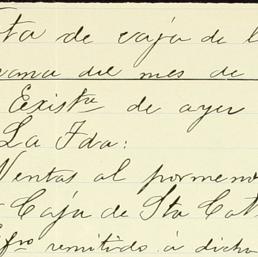 ta de caja de l
mana del mes de
Existra de ayer
La Fda:
Ventas al pormeno
Caja de Sta Cat
Efvo remitido á dicha